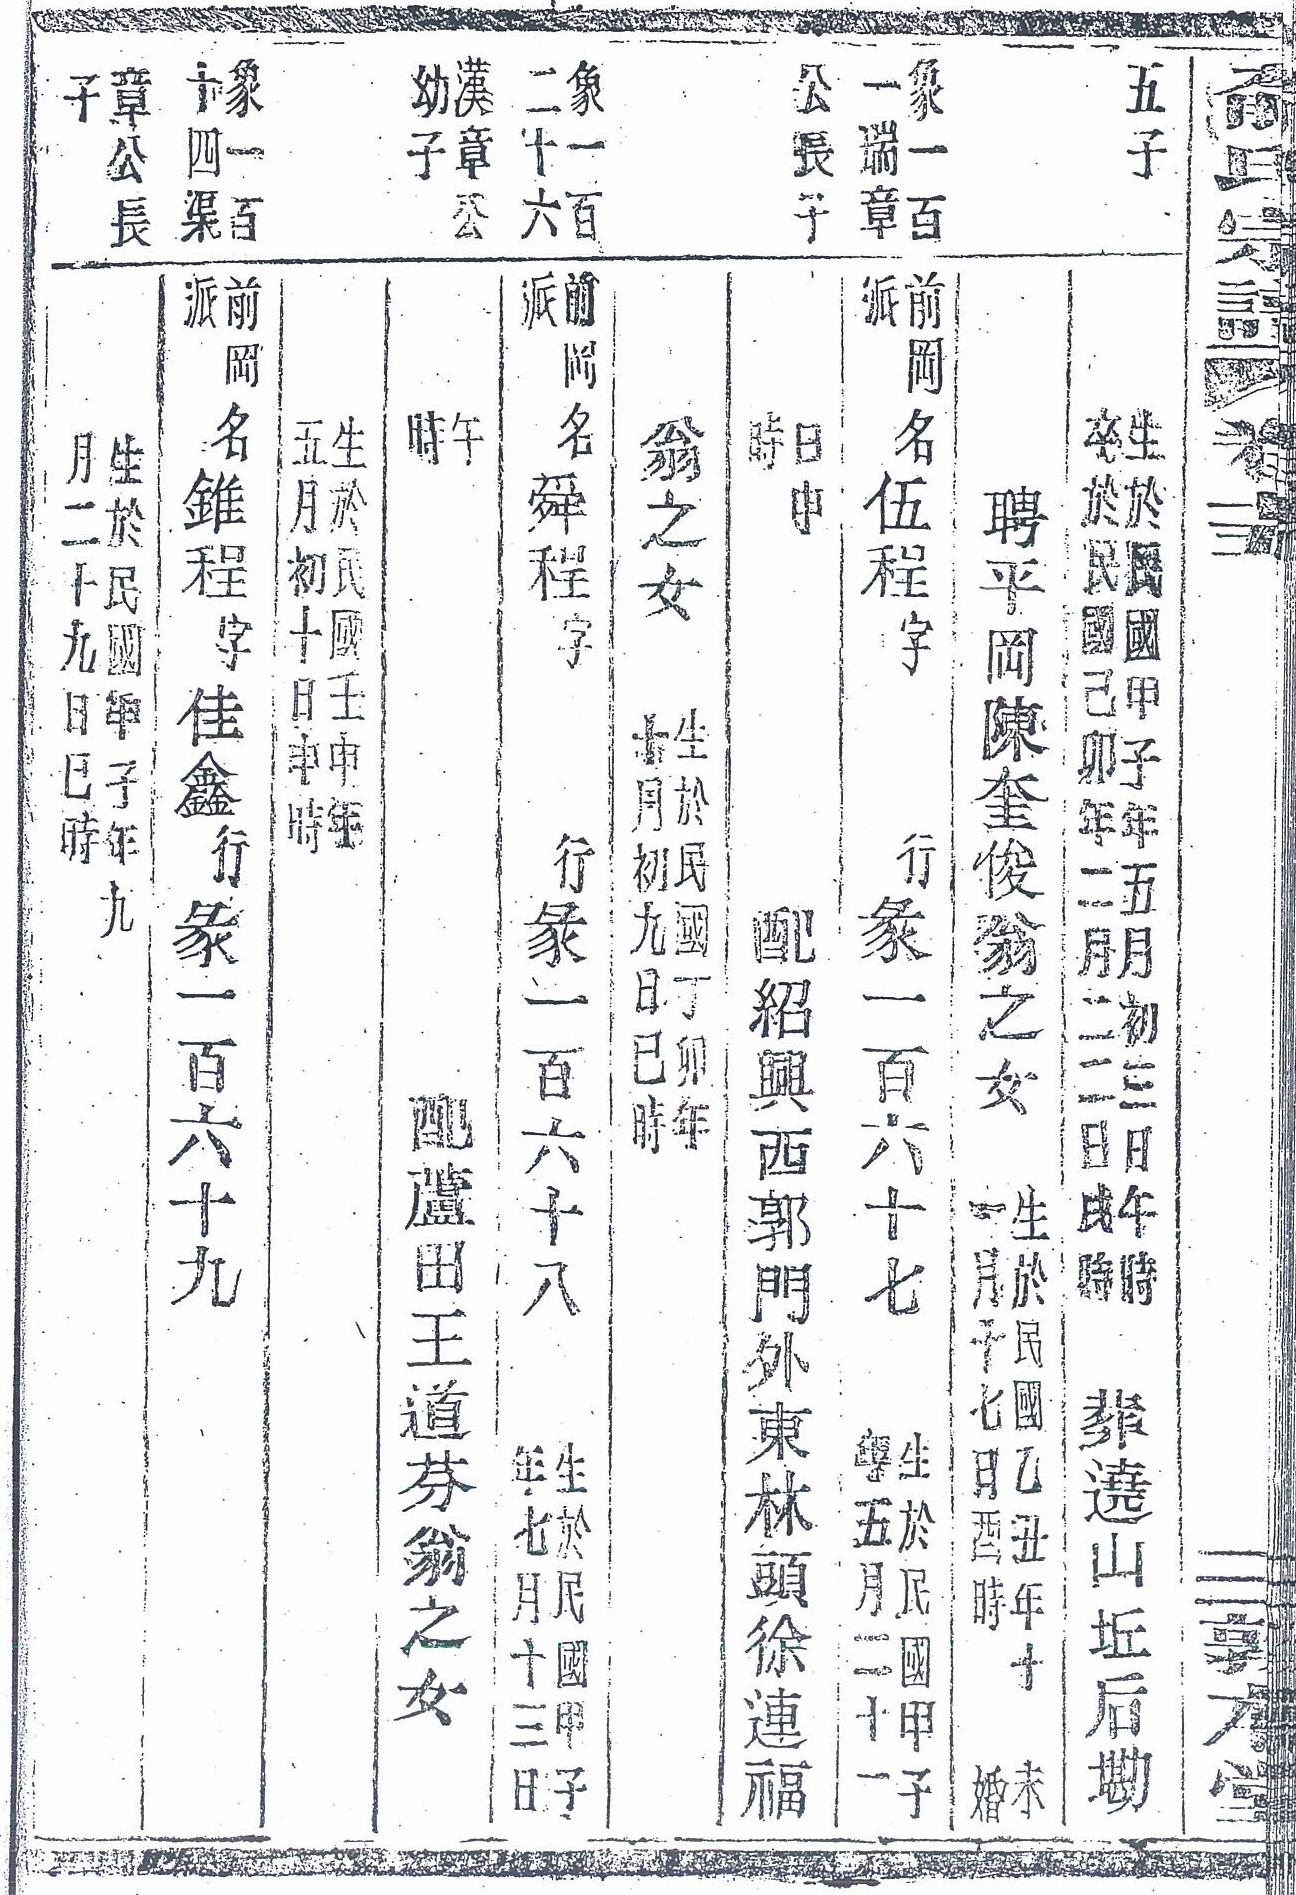 五子
生於民國甲子年五月初三日午時
卒於民國己卯年二月二二日戌時
葬遶山坵后塝
聘平岡陳奎俊翁之女
生於民國乙丑年十
一月十七日酉時
未
婚
象一百
一瑞章
公長子
前岡
派
名伍程字
行彖一百六十七
生於民國甲子
年五月二十一
日申
時
配紹興西郭門外東林頭徐連福
翁之女
生於民國丁卯年
十月初九日巳時
象一百
二十六
漢章公
幼子
前岡
派
名舜程字
行彖一百六十八
生於民國甲子
年七月十三日
午
時
配蘆田王道芬翁之女
生於民國壬申年
五月初十日申時
象一百
十四渠
章公長
子
前岡
派
名錐程字佳鑫行彖一百六十九
生於民國甲子年九
月二十九日巳時